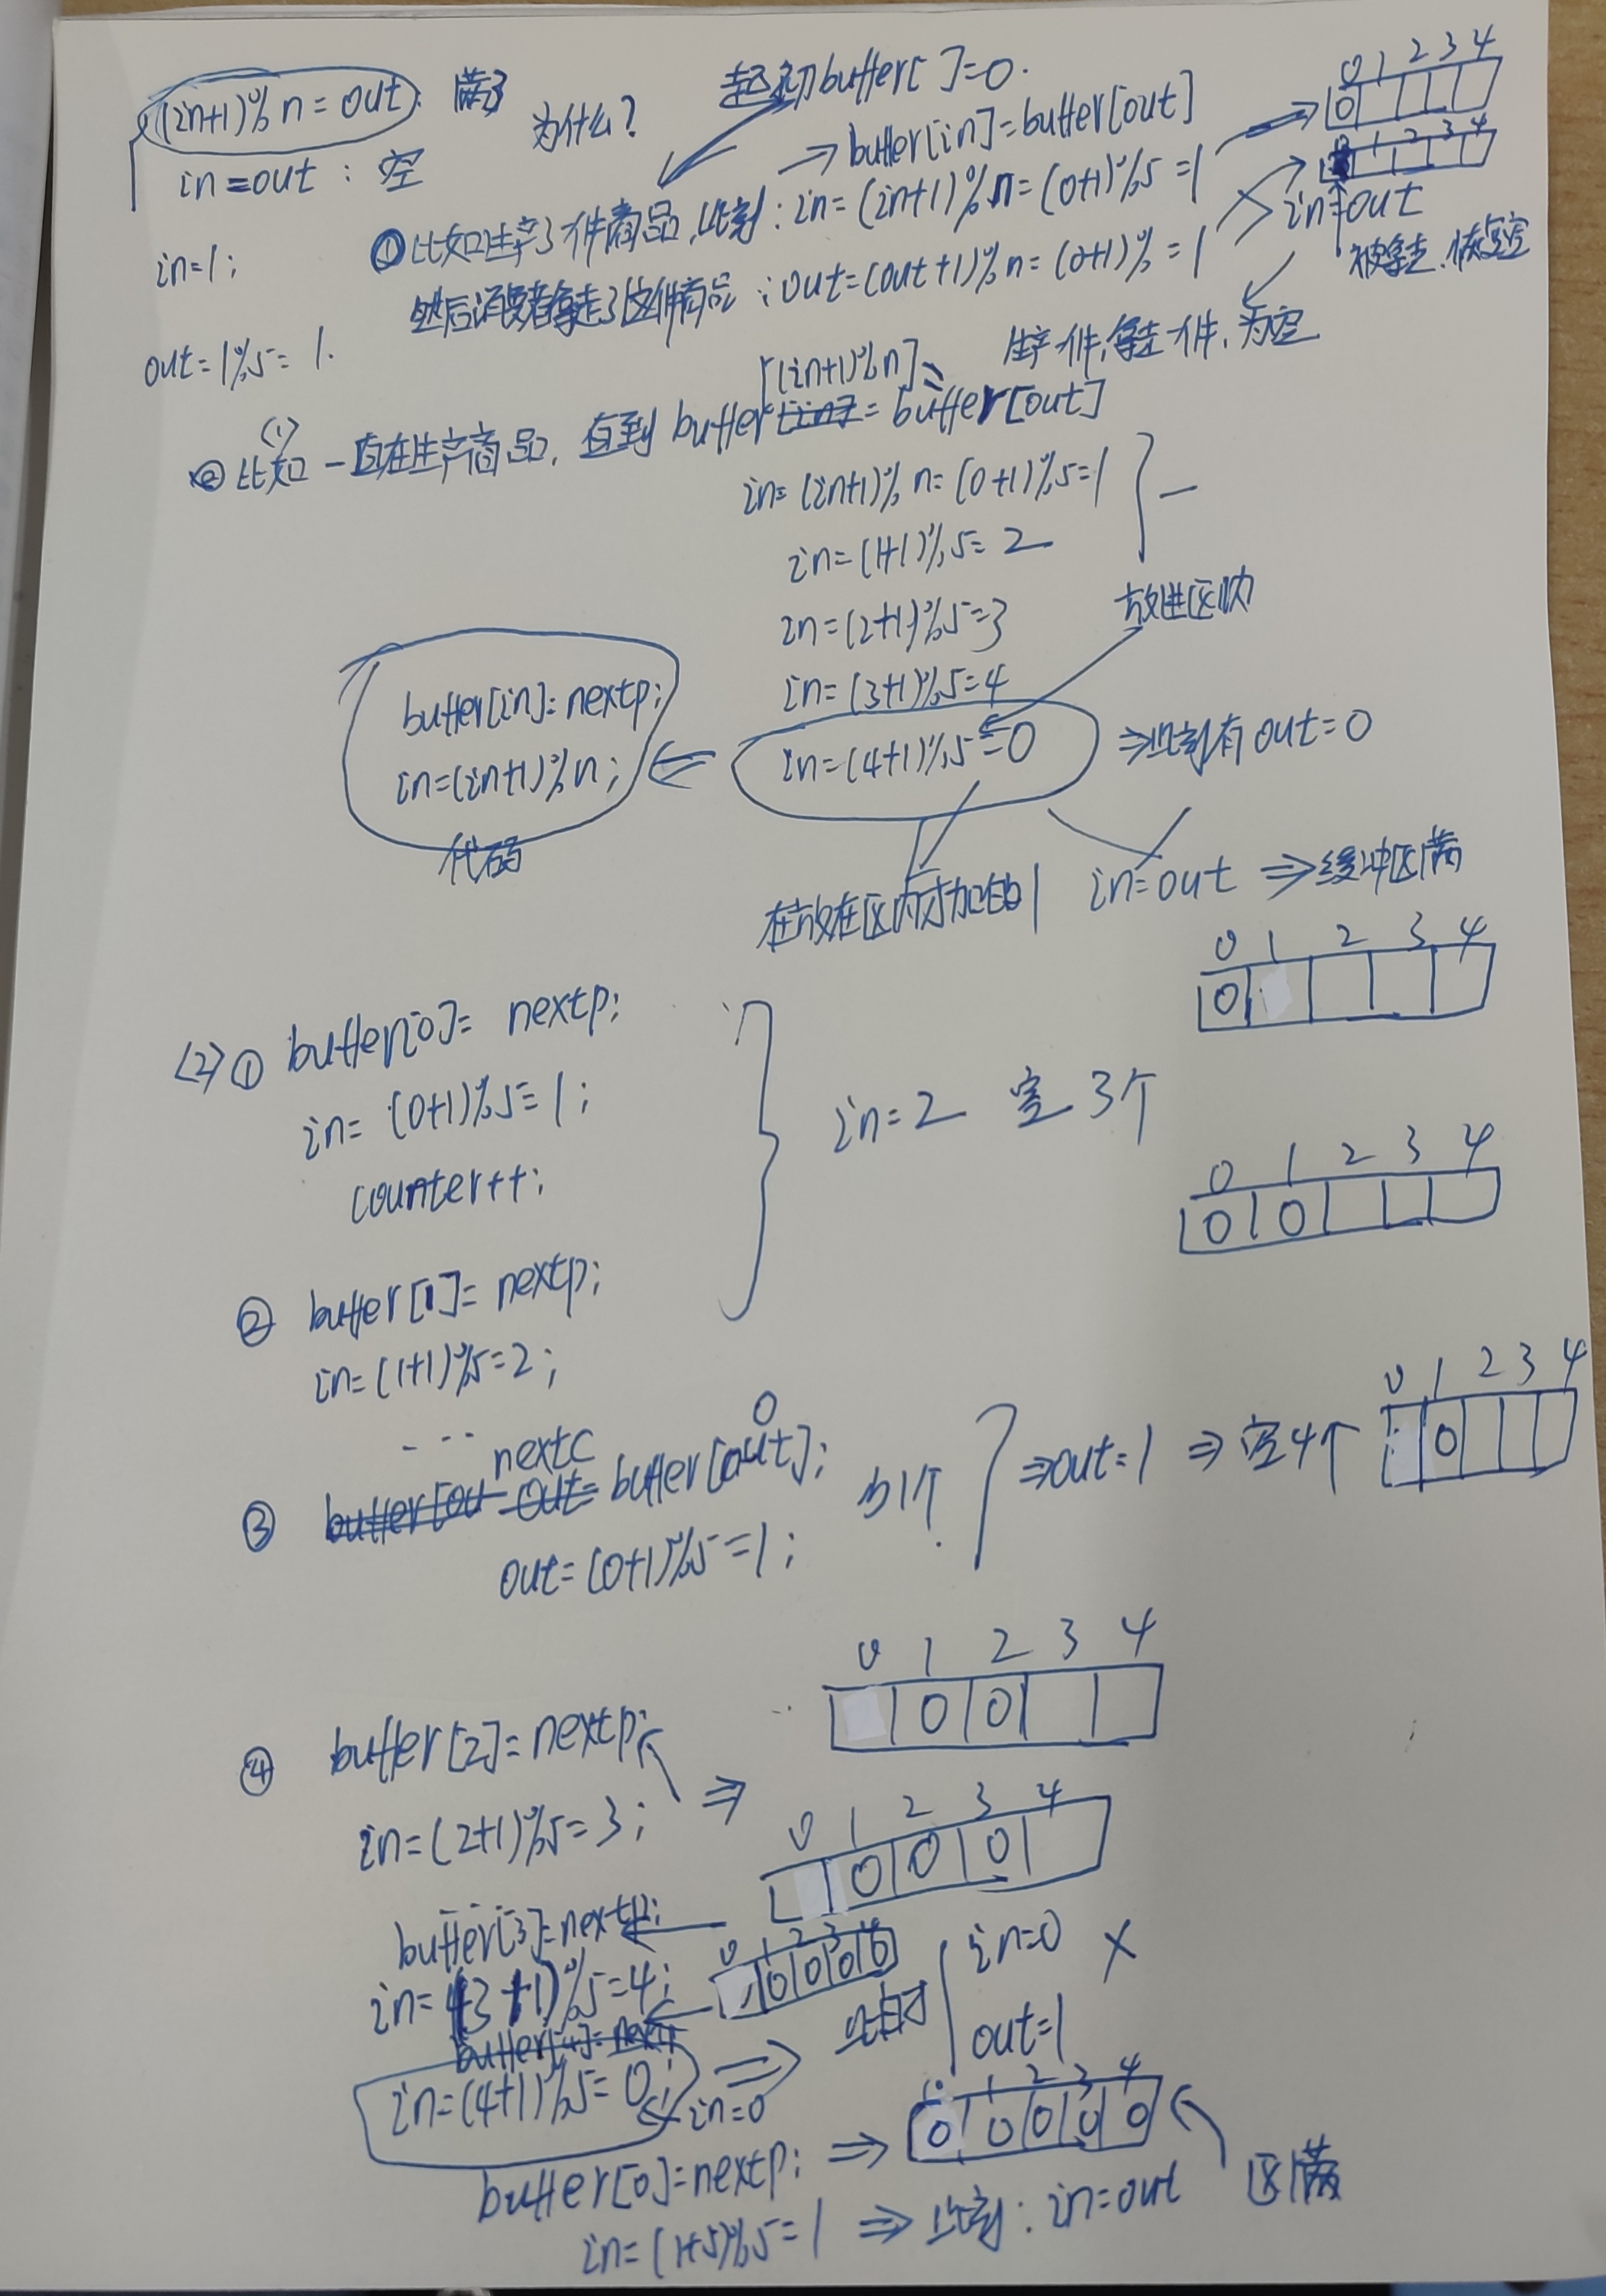 (in+1)%n=out: 满了
为什么?
起初buffer[ ]=0.
in=out : 空
→buffer[in]=buffer[out]
0 1 2 3 4
0
1 2 3 4
in=1;
①比如生产了一件商品,此刻:in=(in+1)%n=(0+1)%5=1
in=out
被拿走.恢复空
out=1%5=1.
然后消费者拿走了这件商品:out=(out+1)%n=(0+1)%=1
生产一件,拿走一件,为空
[(in+1)%n]
<1>
②比如一直在生产商品,直到buffer[in]=buffer[out]
in=(in+1)%n=(0+1)%5=1
in=(1+1)%5=2
in=(2+1)%5=3
放进区内
in=(3+1)%5=4
buffer[in]=nextp;
in=(in+1)%n;
代码
in=(4+1)%5=0
⇒此刻有out=0
在放在区内才加的1
in=out ⇒缓冲区满
0 1 2 3 4
0
<2>① buffer[0]=nextp;
in=(0+1)%5=1;
counter++;
in=2 空3个
0 1 2 3 4
0 0
② buffer[1]=nextp;
in=(1+1)%5=2;
...
nextc
0
③ buffer[ou out= buffer[out];
out=(0+1)%5=1;
⇒out=1 ⇒空4个
0 1 2 3 4
0
0 1 2 3 4
0 0
④ buffer[2]=nextp;
in=(2+1)%5=3;
⇒
0 1 2 3 4
0 0 0
buffer[3]=nextp;
in=(3+1)%5=4;
0 1 2 3 4
0 0 0 0
buffer[4]=nextp
in=(4+1)%5=0;
in=0
⇒
此时
in=0 ×
out=1
1 2 3 4
0 0 0 0 0
buffer[0]=nextp; ⇒
区满
in=(1+5)%5=1 ⇒此刻:in=out